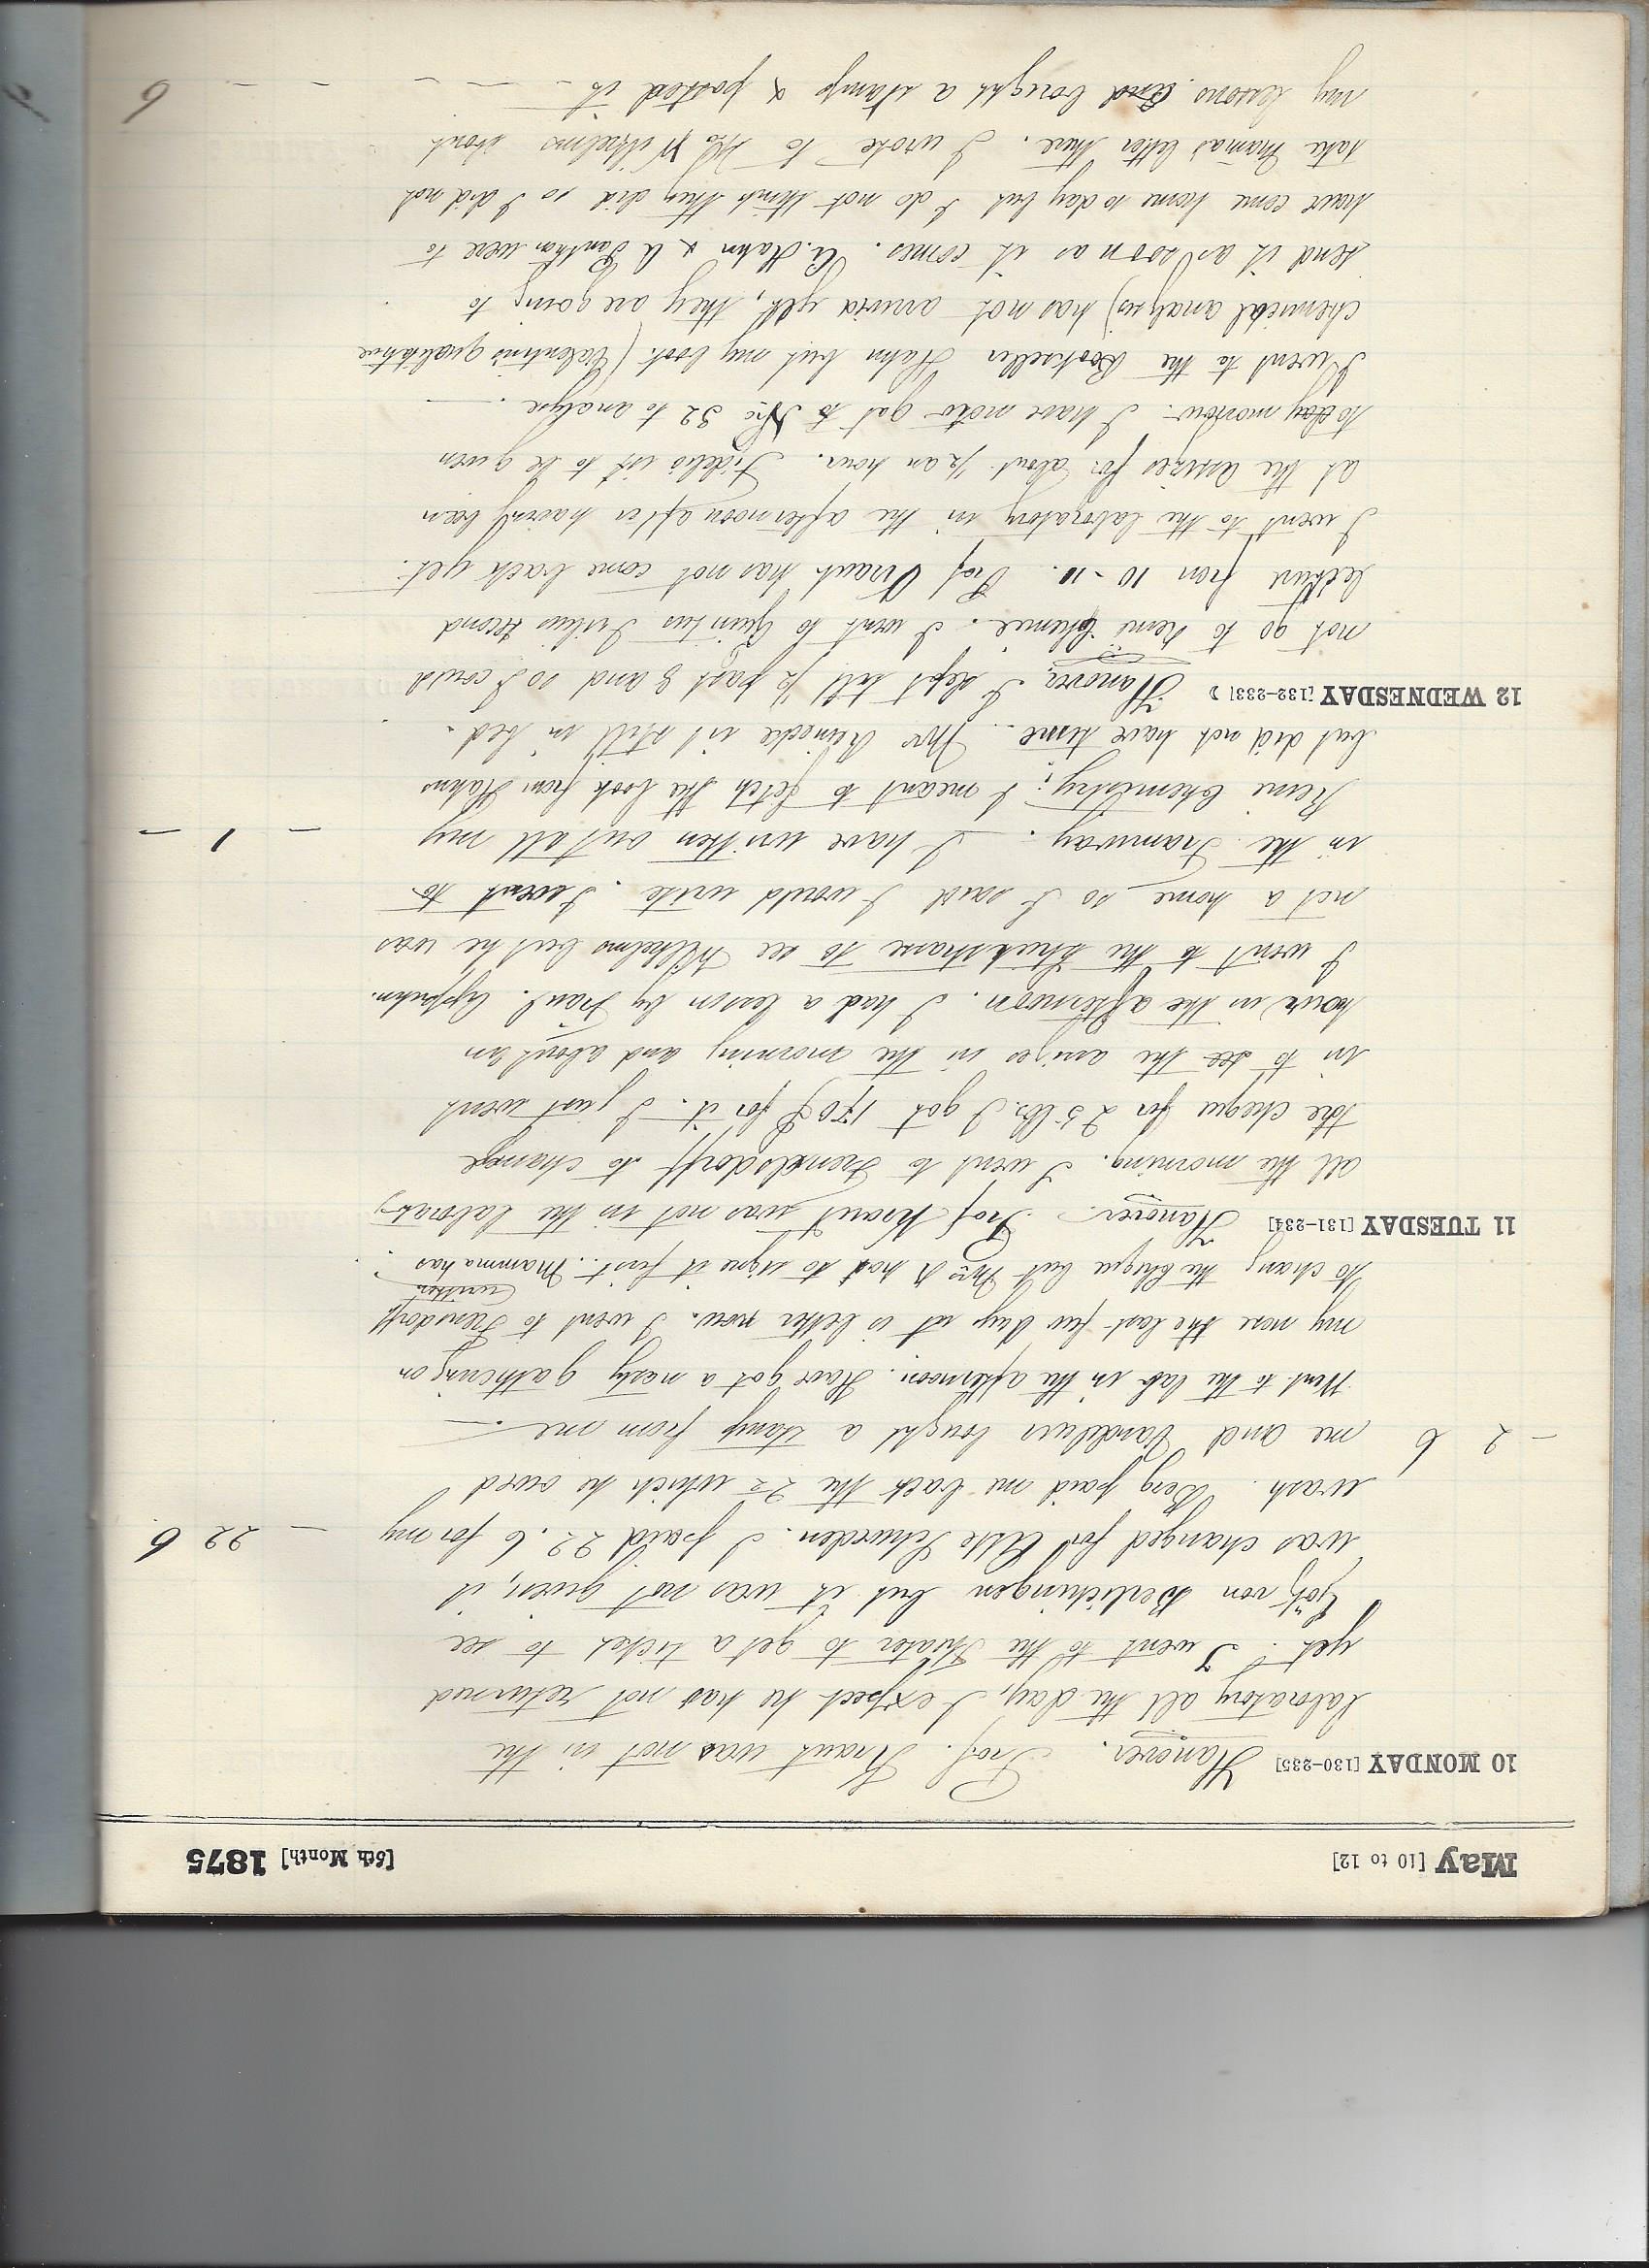 May [10 to 12] [5th Month] 1875
10 MONDAY [130-235] Hanover. Prof. Kraut was not in the
laboratory all the day, I expect he has not returned
yet. I went to the theater to get a ticket to see
Götz von Berlichingen but it was not given, it
was changed for Alte Schweden. I paid 22.6 for my — 22 6
wash. Berg paid me back the 2= which he owed
— 2 6 me and Vandeleur bought a stamp from me —
Went to the lab in the afternoon. Have got a nasty gathering on
my nose the last few days it is better now. I went to Frensdorff
to chang the cheque but Mr R had to signe it first. Mamma has written
11 TUESDAY [131-234] Hanover. Prof Kraut was not in the laboraty
all the morning. I went to Frendsdorff to change
the cheque for 25 lbs. I got 170 for it. I just went
in to see the assizes in the morning and about an
hour in the afternoon. I had a lesson by Fraul.
I went to the to see Wilhelms but he was
not a home so I said I would write. I went to
in the Tramway. — I have written out all my — 1 —
Reine Chemistry; I meant to fetch the book from Hahns
but did not have time. Mr Reinecke ist still in bed.
12 WEDNESDAY [132-233] Hanover. I slept till ½ past 8 and so I could
not go to Reine Chemie. I went to Quintus Icilius second
lecture from 10-11. Prof Kraut has not come back yet.
I went to the laboratory in the afternoon after having been
at the assizes for about ½ an hour. Fidelio ist to be given
to day morrow. I have now got to No 32 to analyse. —
I went to the Bookseller Hahn but my book (Valentins qualitative
chemical analyses) has not arrived yett, they are going to
send it as soon as it comes. A. Hahn & A were to
have come home to day but I do not think they did so I did not
take Mamas letter there. I wrote to Wilhelms about
my lessons and bought a stamp & posted it — — — — 6